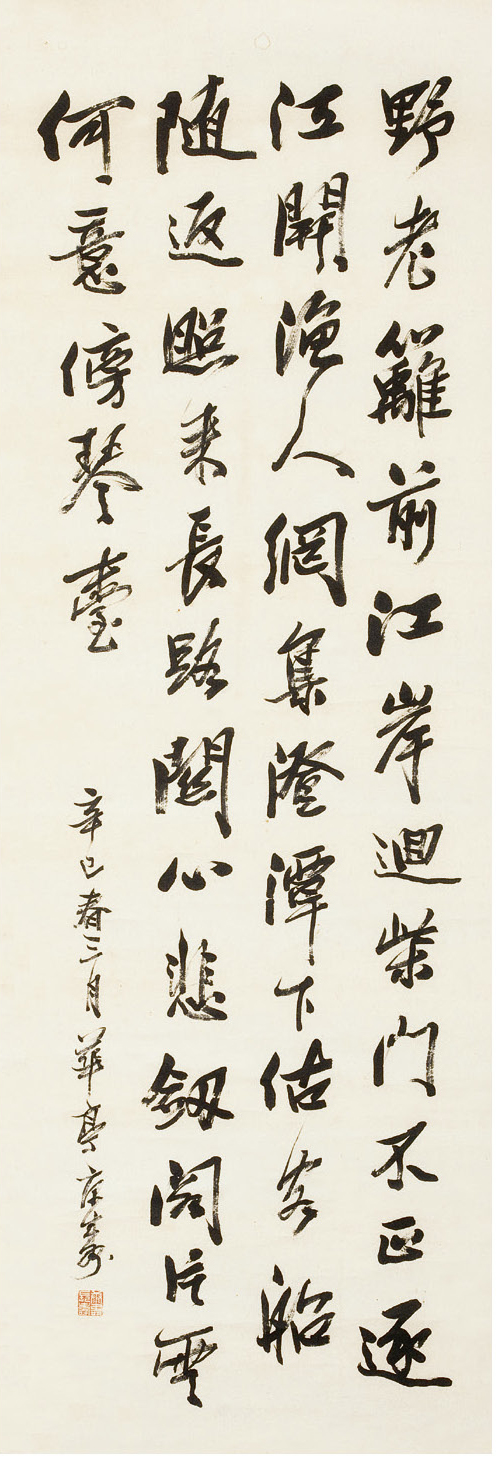 野老籬前江岸迴柴門不正逐
江開漁人網集澄潭下估客船
随返照来長路關心悲劔閣片雲
何意傍琴臺
辛巳春三月華亭